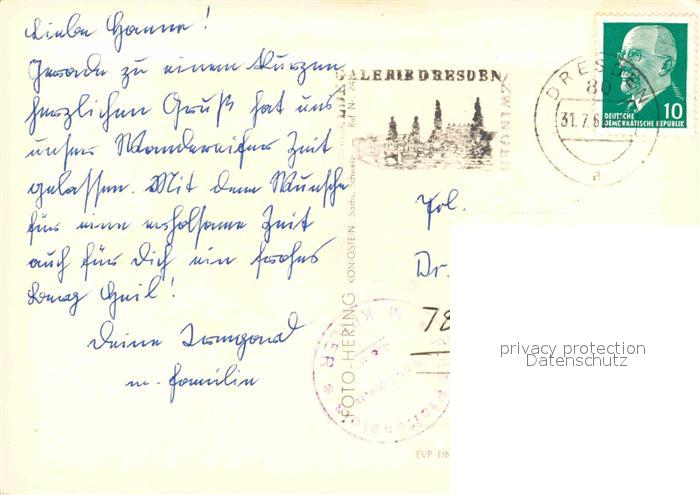 Liebe Hanna!
Gerade zu einem kurzen
herzlichen Gruß hat uns
unser Wandereifer Zeit
gelassen. Mit dem Wunsche
für eine erholsame Zeit
auch für Dich ein frohes
Berg Heil!
Deine Irmgard
u. Familie
GALERIE DRESDEN
ZWINGER
DRESDEN
80
31.7.6
a
10
DEUTSCHE
DEMOKRATISCHE REPUBLIK
Frl.
Dr.
78
FOTO-HERING KÖNIGSTEIN Sächs. Schweiz Ruf Nr.
EVP DN
privacy protection
Datenschutz